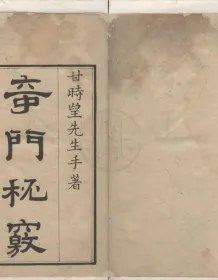 甘時望先生手著
奇門秘竅